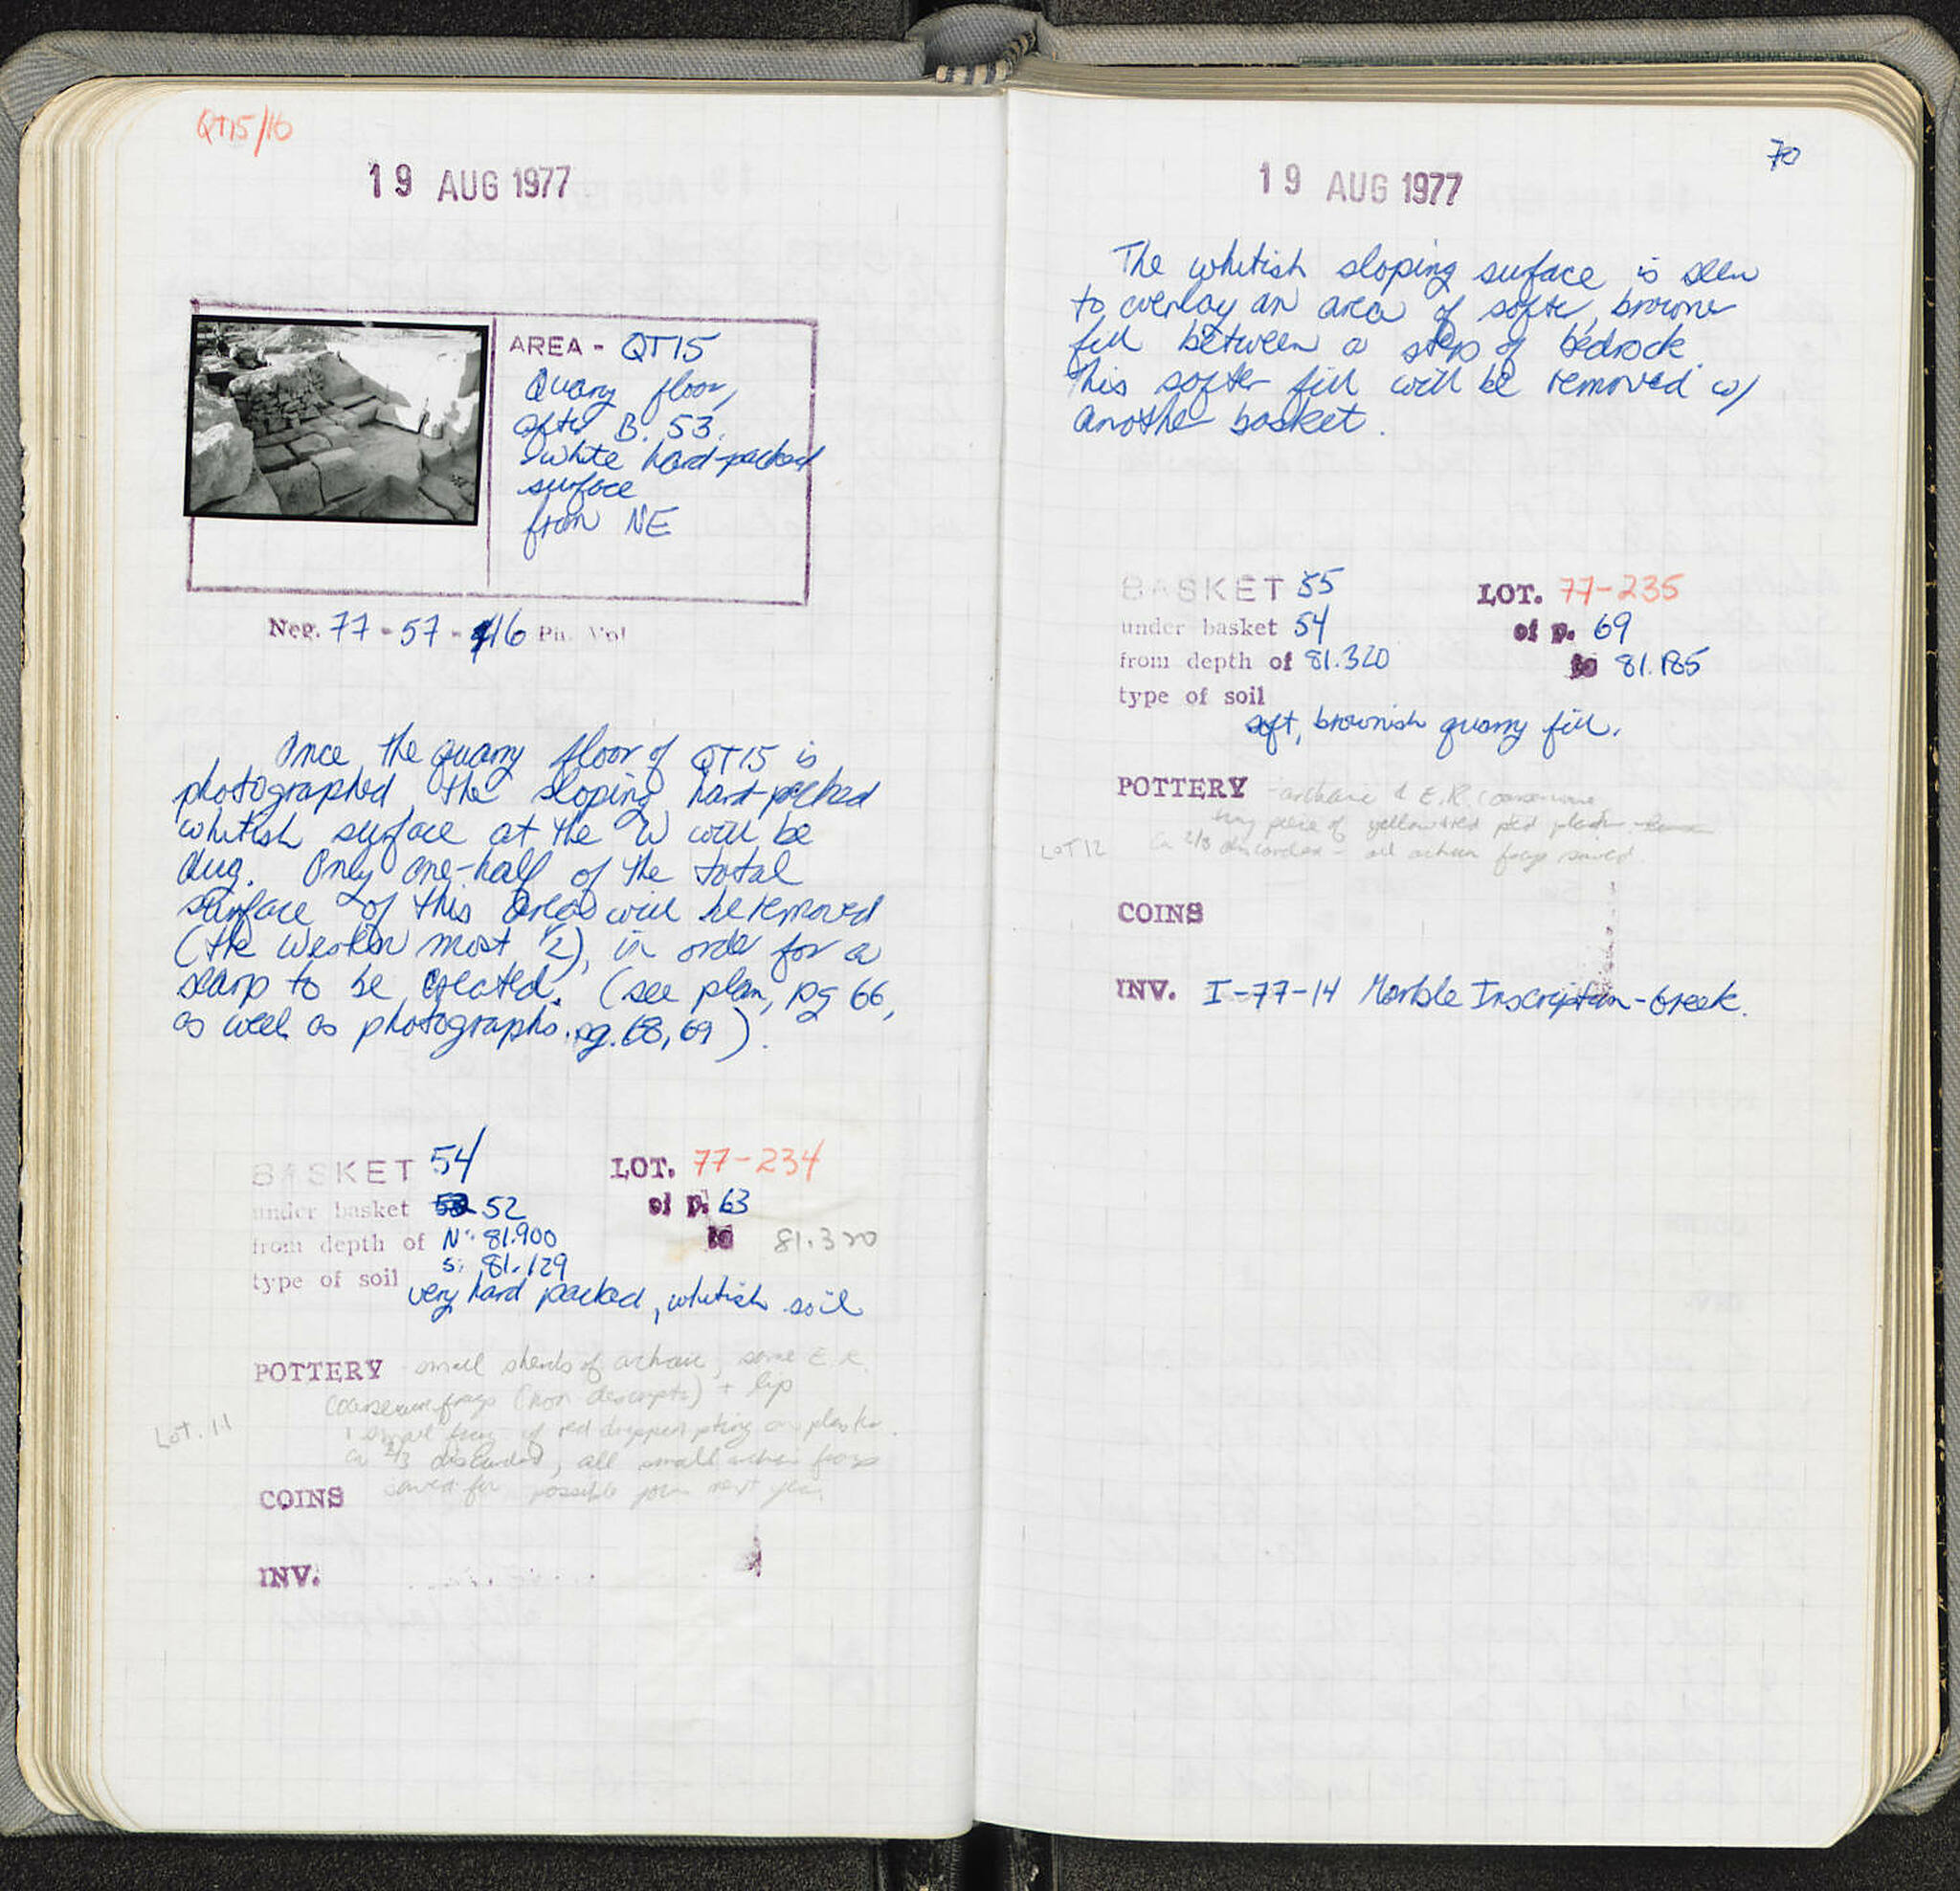 QT15/16
19 AUG 1977
AREA - QT15
Quarry floor,
after B. 53.
white hard-packed
surface
from NE
Neg. 77-57-16 Ph. Vol
Once the quarry floor of QT15 is
photographed, the sloping, hard-packed
whitish surface at the W will be
dug. Only one-half of the total
surface of this area will be removed
(the western most 1/2), in order for a
scarp to be created. (see plan, pg 66,
as well as photographs. pg. 68, 69).
BASKET 54 LOT. 77-234
under basket 52 of p. 63
from depth of N: 81.900 to 81.320
S: 81.129
type of soil very hard packed, whitish soil
POTTERY small sherds of archaic, some E.R.
coarseware frags (non descripts) + lip
1 small frag of red dipper ptng on plaster.
Lot. 11
ca 2/3 discarded, all small archaic frags
saved for possible joins next year.
COINS
INV.
70
19 AUG 1977
The whitish sloping surface is seen
to overlay an area of softer, browner
fill between a step of bedrock.
This softer fill will be removed w/
another basket.
BASKET 55 LOT. 77-235
under basket 54 of p. 69
from depth of 81.320 to 81.185
type of soil
soft, brownish quarry fill.
POTTERY - archaic & E.R. coarseware
tiny piece of yellow & red ptd plaster
LOT 12 Ca 2/3 discarded - all archaic frags saved
COINS
INV. I-77-14 Marble Inscription-Greek.